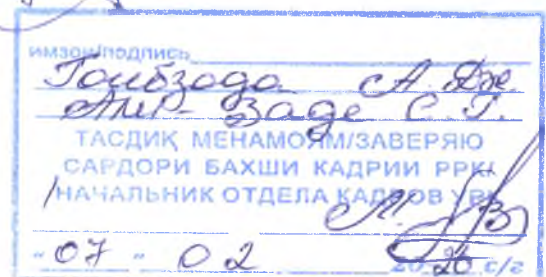 имзои/подпись
Гоибзода А. Дж.
Амир-Заде С. Г.
ТАСДИҚ МЕНАМОЯМ/ЗАВЕРЯЮ
САРДОРИ БАХШИ КАДРИИ РРК/
НАЧАЛЬНИК ОТДЕЛА КАДРОВ УРК
"07" 02 2026 с/г